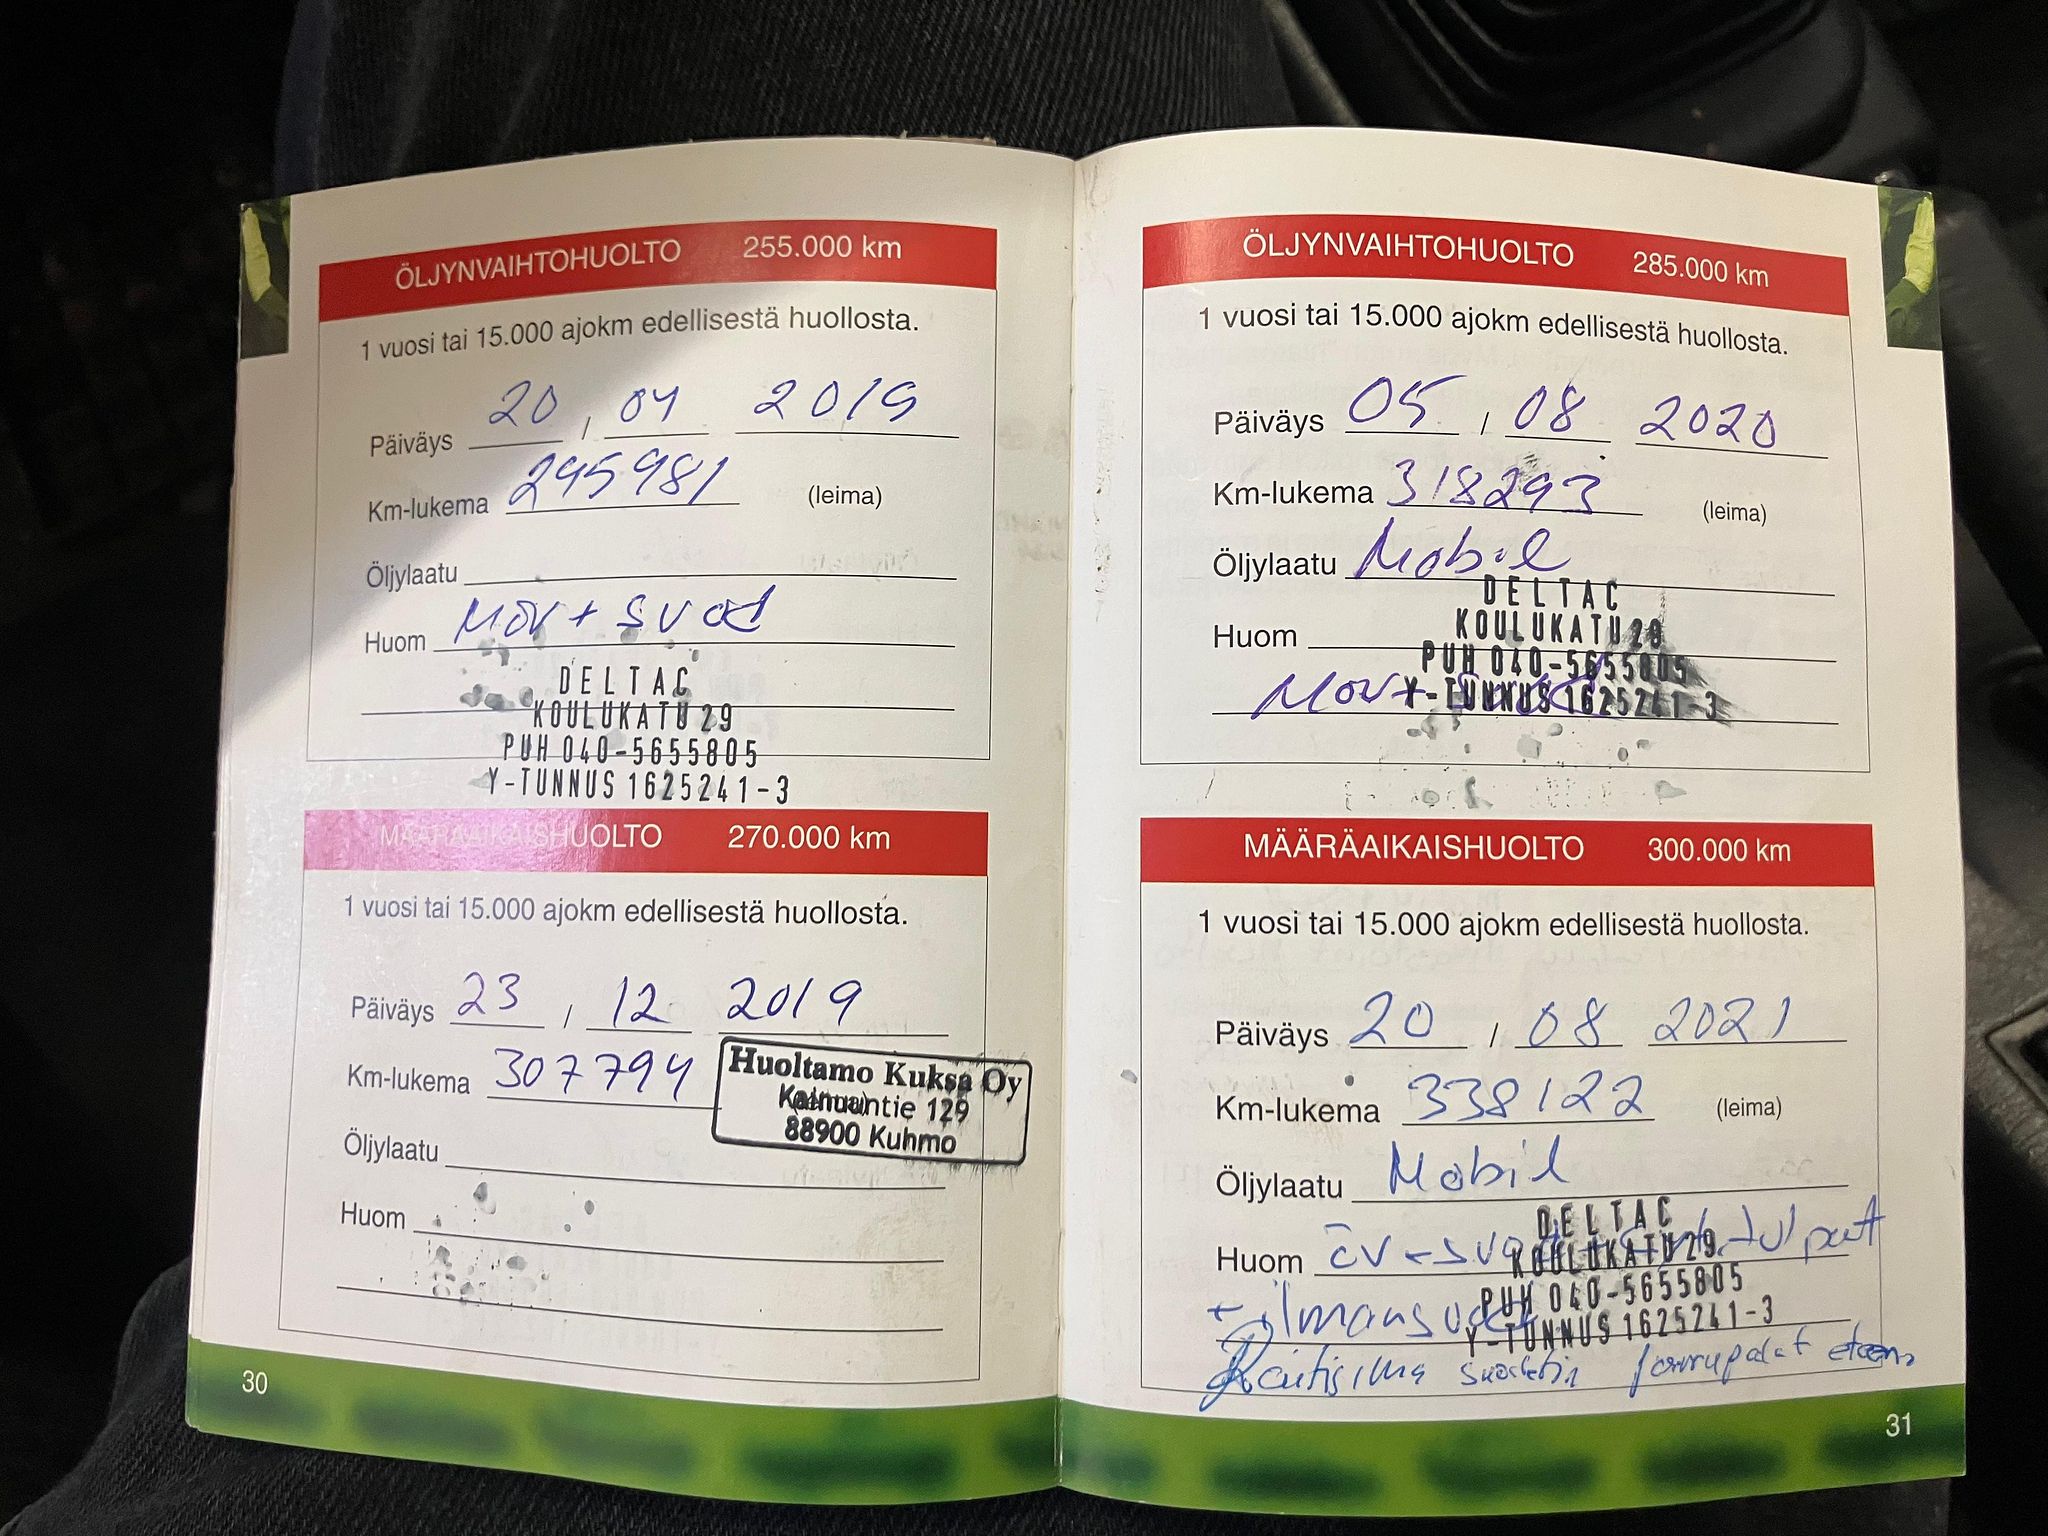 ÖLJYNVAIHTOHUOLTO 255.000 km
1 vuosi tai 15.000 ajokm edellisestä huollosta.
Päiväys 20 / 04 2019
Km-lukema 295981 (leima)
Öljylaatu
Huom MÖV + svod
DELTAC
KOULUKATU 29
PUH 040-5655805
Y-TUNNUS 1625241-3
MÄÄRÄAIKAISHUOLTO 270.000 km
1 vuosi tai 15.000 ajokm edellisestä huollosta.
Päiväys 23 / 12 2019
Km-lukema 307794
Huoltamo Kuksa Oy
Kainuuntie 129
88900 Kuhmo
(leima)
Öljylaatu
Huom
30
ÖLJYNVAIHTOHUOLTO 285.000 km
1 vuosi tai 15.000 ajokm edellisestä huollosta.
Päiväys 05 / 08 2020
Km-lukema 318293 (leima)
Öljylaatu Mobil
Huom
DELTAC
KOULUKATU 29
PUH 040-5655805
Y-TUNNUS 1625241-3
MÖV +
MÄÄRÄAIKAISHUOLTO 300.000 km
1 vuosi tai 15.000 ajokm edellisestä huollosta.
Päiväys 20 / 08 2021
Km-lukema 338122 (leima)
Öljylaatu Mobil
Huom ÖV + svod
DELTAC
KOULUKATU 29
PUH 040-5655805
Y-TUNNUS 1625241-3
+ ilmansuod
Raitisilma suodatin jarrupalat eteen
31